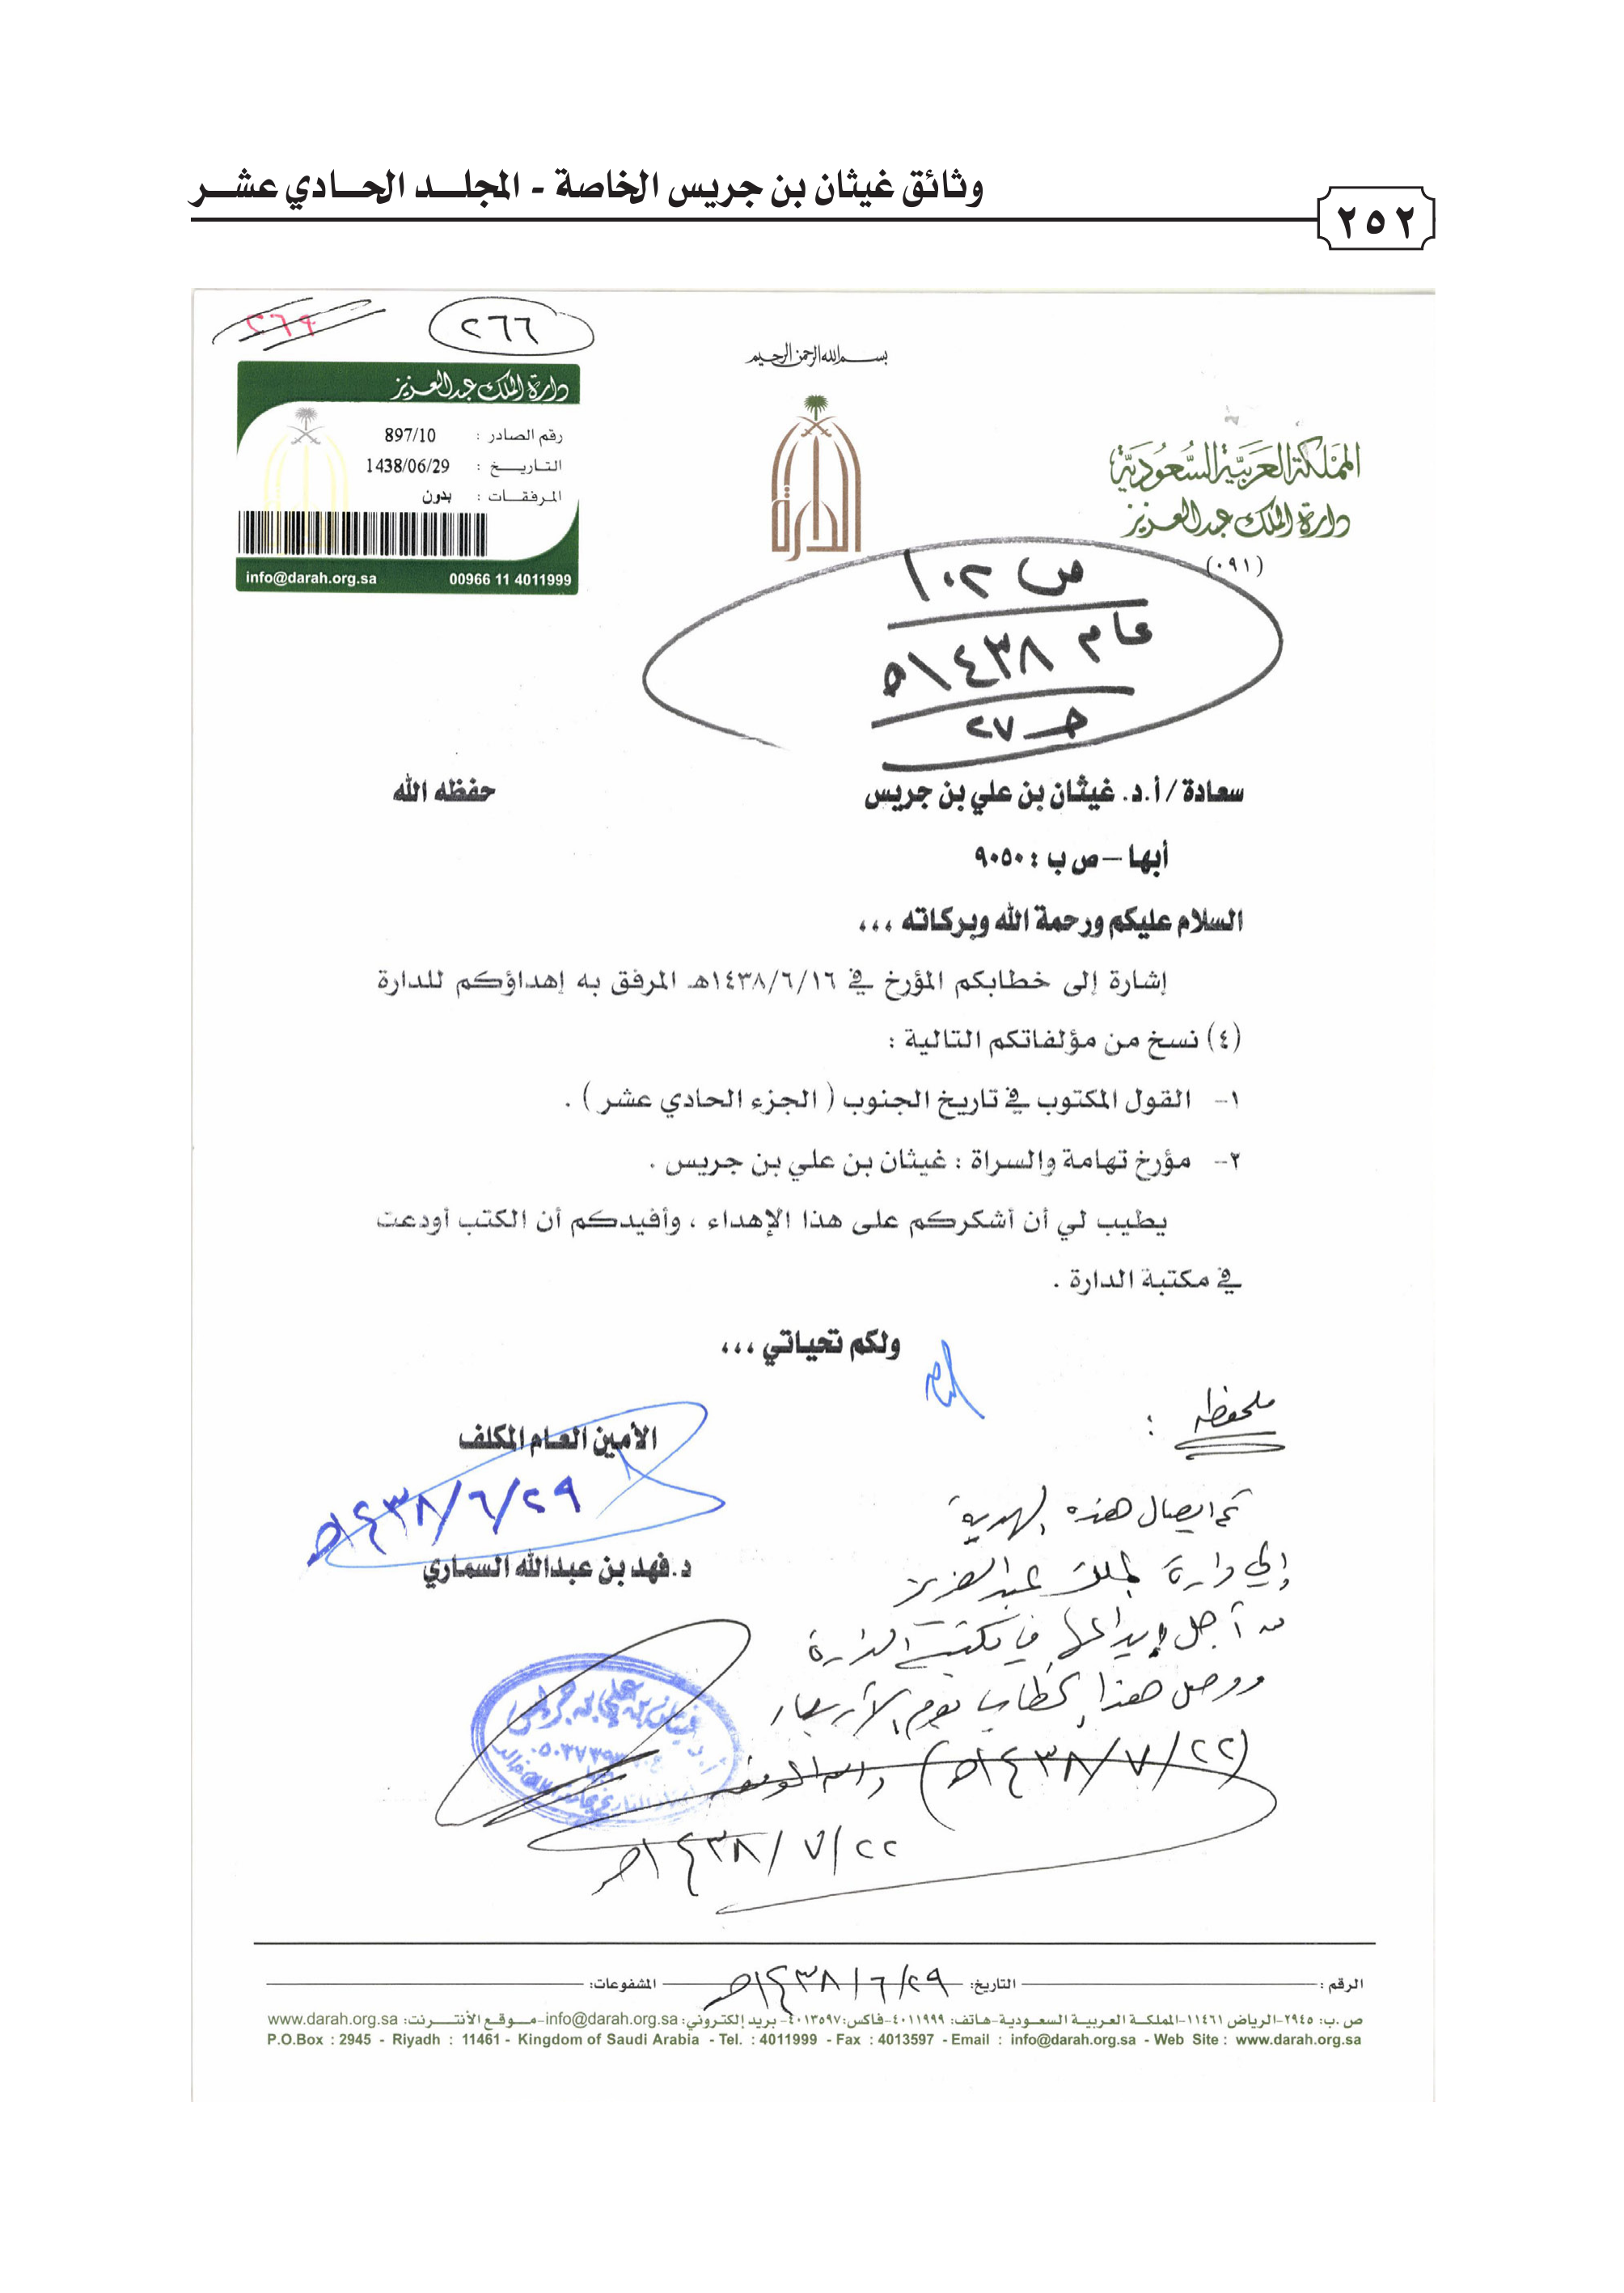 وثائق غيثان بن جريس الخاصة - المجلد الحادي عشر
٢٥٢
٢٦٩
٢٦٦
دارة الملك عبدالعزيز
رقم الصادر : 897/10
التاريخ : 1438/06/29
المرفقات : بدون
info@darah.org.sa 00966 11 4011999
بسم الله الرحمن الرحيم
الدارة
المملكة العربية السعودية
دارة الملك عبدالعزيز
(٠٩١)
ص ١٠٢
عام ١٤٣٨هـ
جـ ٢٧
سعادة / أ.د. غيثان بن علي بن جريس حفظه الله
أبها – ص ب : ٩٠٥٠
السلام عليكم ورحمة الله وبركاته ،،،
إشارة إلى خطابكم المؤرخ في ١٤٣٨/٦/١٦هـ المرفق به إهداؤكم للدارة
(٤) نسخ من مؤلفاتكم التالية :
١- القول المكتوب في تاريخ الجنوب ( الجزء الحادي عشر ) .
٢- مؤرخ تهامة والسراة : غيثان بن علي بن جريس .
يطيب لي أن أشكركم على هذا الإهداء ، وأفيدكم أن الكتب أودعت
في مكتبة الدارة .
ولكم تحياتي ،،،
الأمين العام المكلف
١٤٣٨/٦/٢٩هـ
د.فهد بن عبدالله السماري
ملحوظة :
تم ايصال هذه الهدية
إلى دارة الملك عبدالعزيز
من أجل إيداعها في مكتبة الدارة
ووصل هذا الخطاب يوم الأربعاء
(١٤٣٨/٧/٢٢هـ) والله الموفق
١٤٣٨/٧/٢٢هـ
أ.د. غيثان بن علي بن جريس
الرقم : التاريخ: ١٤٣٨/٦/٢٩هـ المشفوعات:
ص .ب: ٢٩٤٥-الرياض ١١٤٦١-المملكة العربية السعودية-هاتف: ٤٠١١٩٩٩-فاكس: ٤٠١٣٥٩٧- بريد إلكتروني: info@darah.org.sa-موقع الأنترنت: www.darah.org.sa
P.O.Box : 2945 - Riyadh : 11461 - Kingdom of Saudi Arabia - Tel. : 4011999 - Fax : 4013597 - Email : info@darah.org.sa - Web Site : www.darah.org.sa